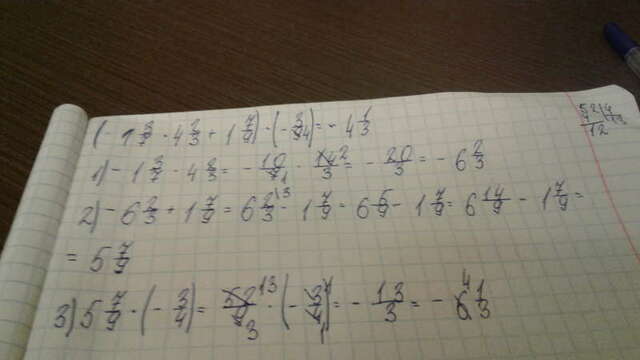 (- 1 3/7 · 4 2/3 + 1 7/9) · (- 3/4) = - 4 1/3
1) - 1 3/7 · 4 2/3 = - 10/7 · 14/3 = - 20/3 = - 6 2/3
2) - 6 2/3 + 1 7/9 = 6 2/3 - 1 7/9 = 6 6/9 - 1 7/9 = 6 14/9 - 1 7/9 =
= 5 7/9
3) 5 7/9 · (- 3/4) = 52/9 · (- 3/4) = - 13/3 = - 4 1/3